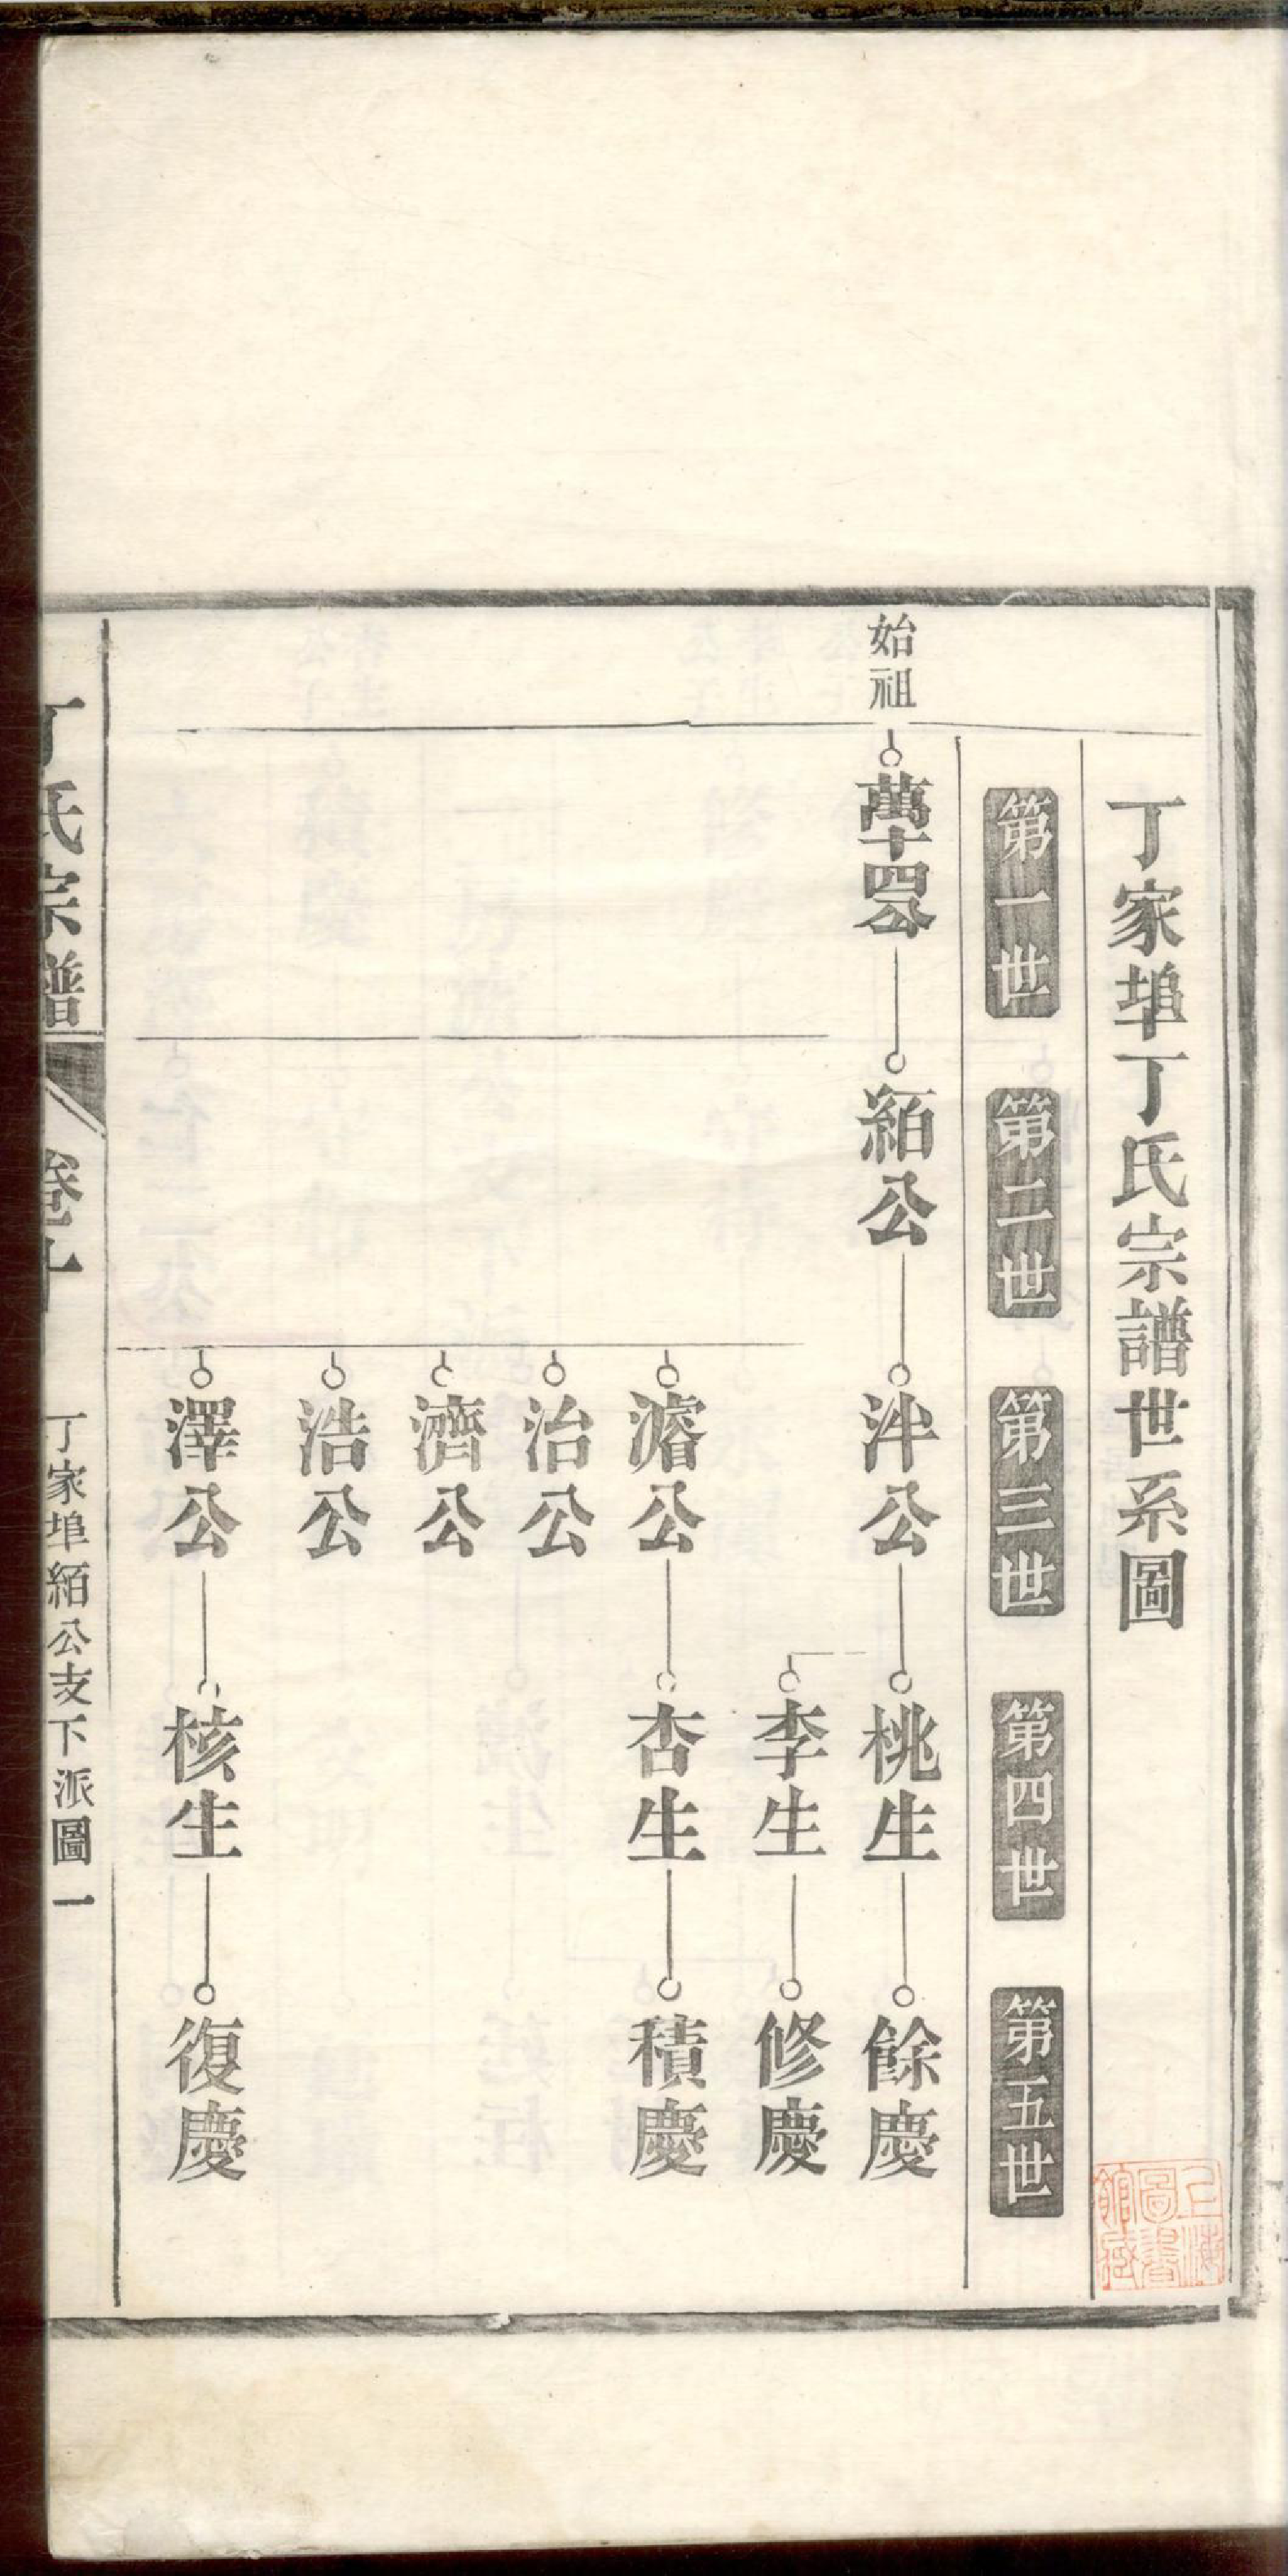 丁家埠丁氏宗譜世系圖
第一世
第二世
第三世
第四世
第五世
始祖
萬十四公
絔公
泮公
桃生
餘慶
李生
修慶
濬公
杏生
積慶
治公
濟公
浩公
澤公
核生
復慶
丁氏宗譜
卷十
丁家埠絔公支下派圖一
上海圖書館藏